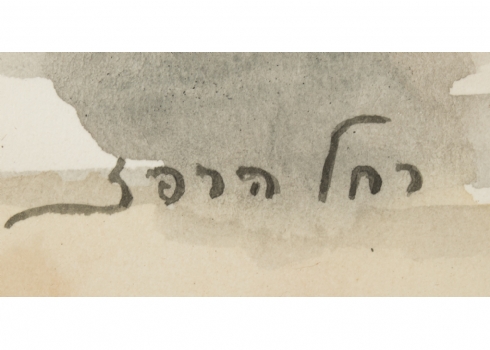 רחל הרפז